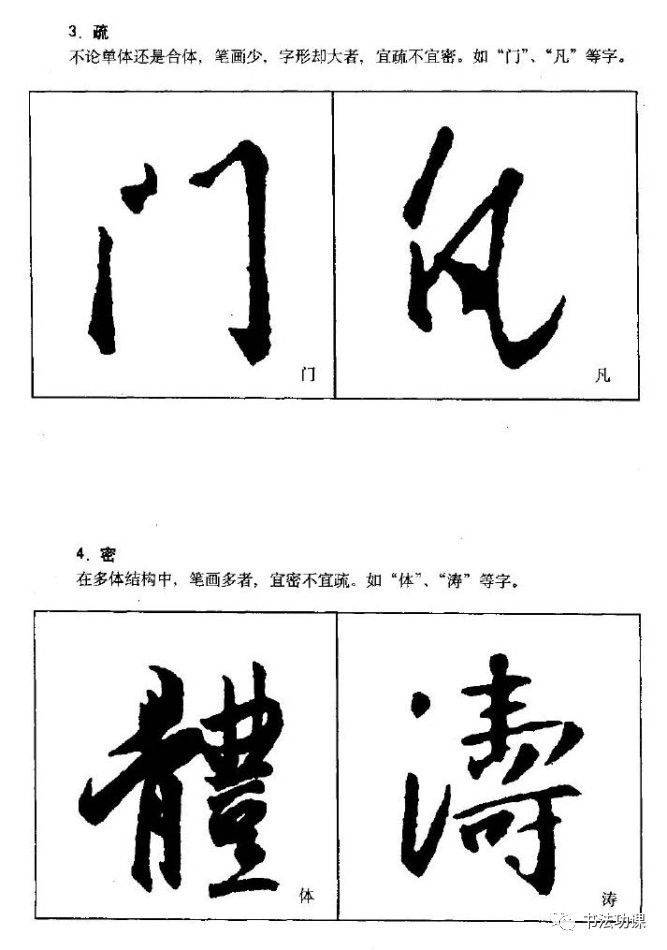 3．疏
不论单体还是合体，笔画少，字形却大者，宜疏不宜密。如“门”、“凡”等字。
门 凡
门 凡
4．密
在多体结构中，笔画多者，宜密不宜疏。如“体”、“涛”等字。
體 濤
体 涛
书法功课